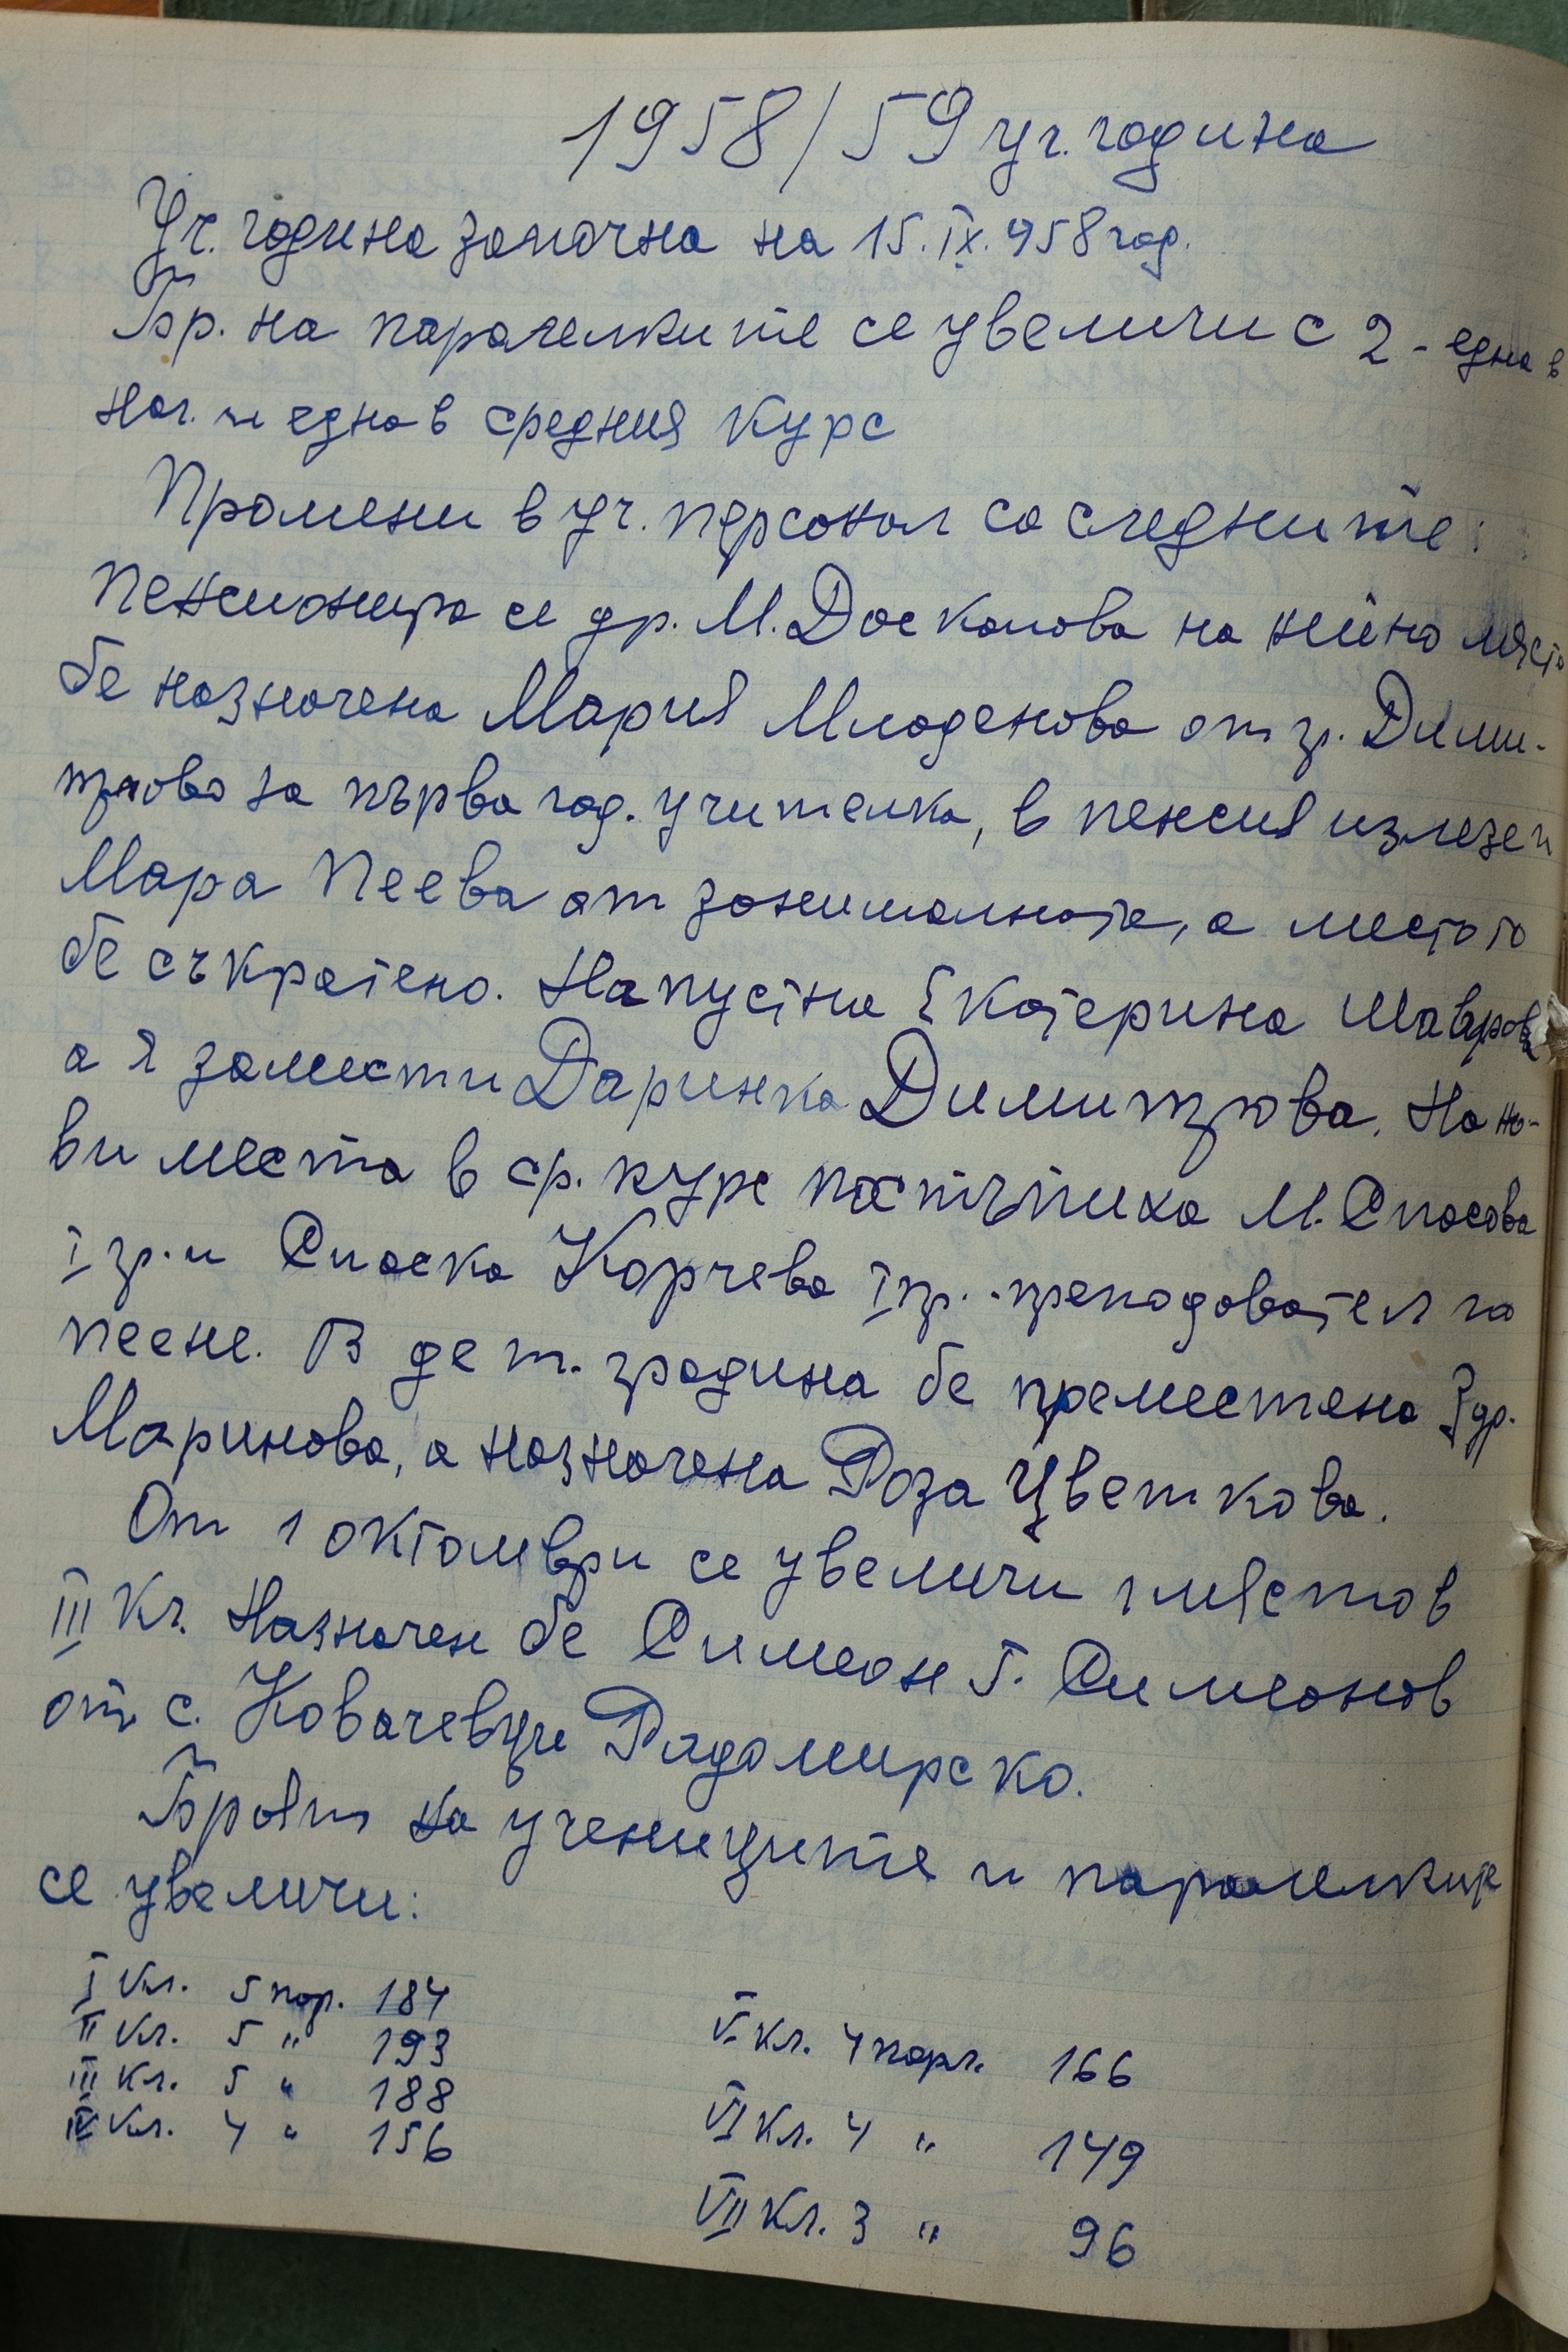 1958/59 уч. година
Уч. година започна на 15.IX.958 год.
Бр. на паралелките се увеличи с 2 - една в
нач. и една в средния курс
Промени в уч. персонал са следните:
Пенсионира се др. М. Досканова на нейно място
бе назначена Мария Младенова от гр. Дими-
трово за първа год. учителка, в пенсия излезе и
Мара Пеева от занималнята, а местото
бе съкратено. Напустна Екатерина Маврова
а я замести Даринка Димитрова. На но-
ви места в ср. курс постъпиха М. Спасова
I гр. и Спаска Корчева I гр. - преподавател по
пеене. В дет. градина бе преместена Здр.
Маринова, а назначена Роза Цветкова.
От 1 октомври се увеличи 1 място в
III кл. Назначен бе Симеон Г. Симеонов
от с. Ковачевци Радомирско.
Броят на учениците и паралелките
се увеличи:
I кл. 5 пар. 184
II кл. 5 " 193
III кл. 5 " 188
IV кл. 4 " 156
V кл. 4 парл. 166
VI кл. 4 " 149
VII кл. 3 " 96